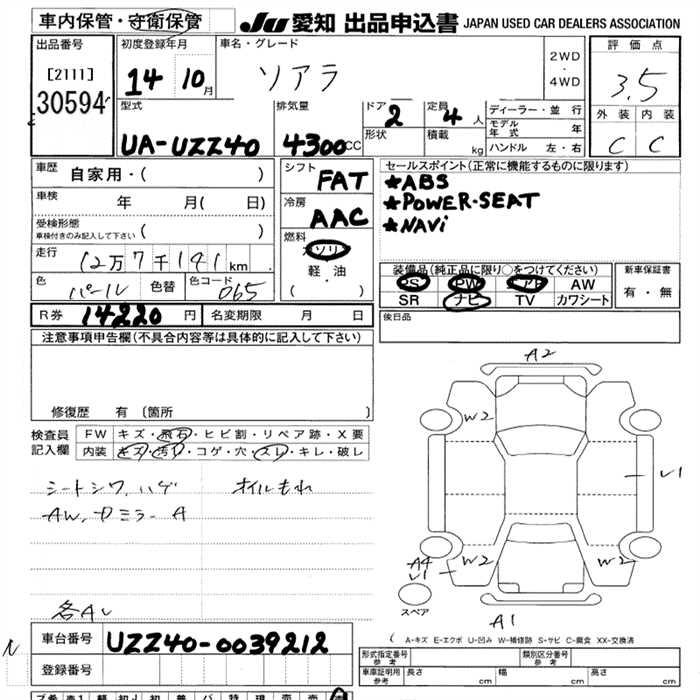 車内保管・守衛保管
JU 愛知 出品申込書 JAPAN USED CAR DEALERS ASSOCIATION
出品番号
[2111]
30594
初度登録年月
14 10月
車名・グレード
ソアラ
2WD
・
4WD
評価点
3.5
外装 内装
C C
型式
UA-UZZ40
排気量
4300cc
ドア
2
形状
定員
4人
積載 kg
ディーラー・並行
モデル年式 年
ハンドル 左・右
車歴
自家用・( )
車検
年 月( 日)
受検形態
車検付きのみ記入して下さい
( )
走行
12万7千141km
色
パール
色替
色コード
065
シフト
FAT
冷房
AAC
燃料
ガソリン
軽・油
( )
セールスポイント(正常に機能するものに限ります)
★ABS
★POWER・SEAT
★NAVi
装備品(純正品に限り○をつけてください)
PS PW エアB AW
SR ナビ TV カワシート
新車保証書
有・無
R券 14220円
名変期限 月 日
後日品
注意事項申告欄(不具合内容等は具体的に記入して下さい)
修復歴 有(箇所 )
検査員記入欄
FW キズ・飛石・ヒビ割・リペア跡・X要
内装 キズ・汚れ・コゲ・穴・スレ・キレ・破レ
シートシワ、ハゲ オイルもれ
AW、ドミラー A
各A
A2
W2
U1
W2
W2
A4
U1
A1
スペア
A-キズ E-エクボ U-凹み W-補修跡 S-サビ C-腐食 XX-交換済
車台番号
UZZ40-0039212
登録番号
形式指定番号
参考
類別区分番号
参考
車庫証明用
参考
長さ cm
幅 cm
高さ cm